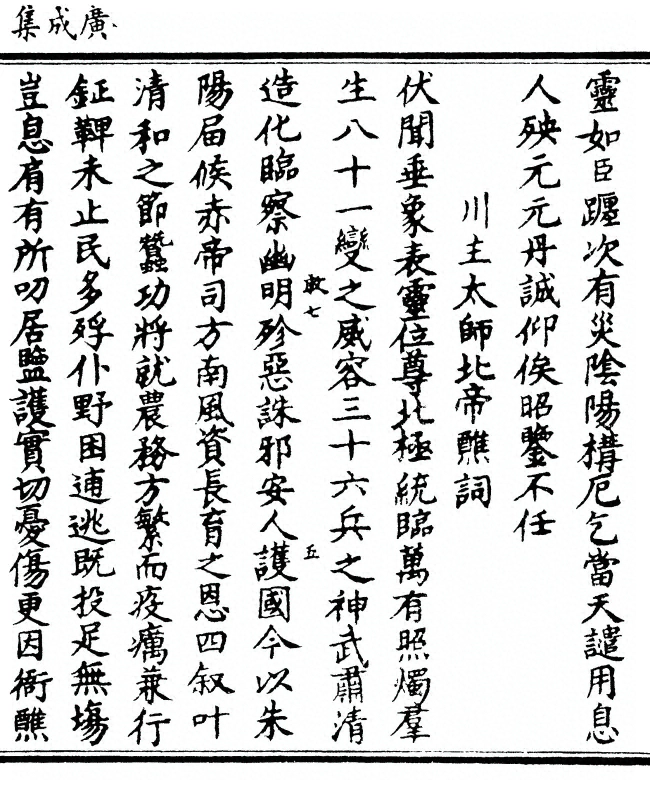 廣成集
靈如臣躔次有災陰陽構厄乞當天譴用息
人殃元元丹誠仰俟昭鑒不任
川主太師北帝醮詞
伏聞垂象表靈位尊北極統臨萬有照燭羣
生八十一變之威容三十六兵之神武肅清
造化臨察幽明殄惡誅邪安人護國今以朱
陽届候赤帝司方南風資長育之恩四叙叶
清和之節蠶功將就農務方繁而疫癘兼行
鉦鞞未止民多殍仆野困逋逃既投足無塲
豈息肩有所叨居鹽護實切憂傷更因衙醮
七
五